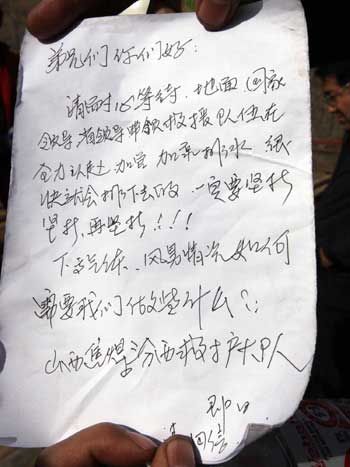 弟兄们你们好：
请耐心等待，地面国家
领导，省领导带领救援队伍在
奋力以赴加官加泵排水 很
快就会排下去的 一定要坚持
坚持，再坚持！！！
下气体、风易情况如何
需要我们做些什么？
山西焦煤汾西救护大队
即日
回信